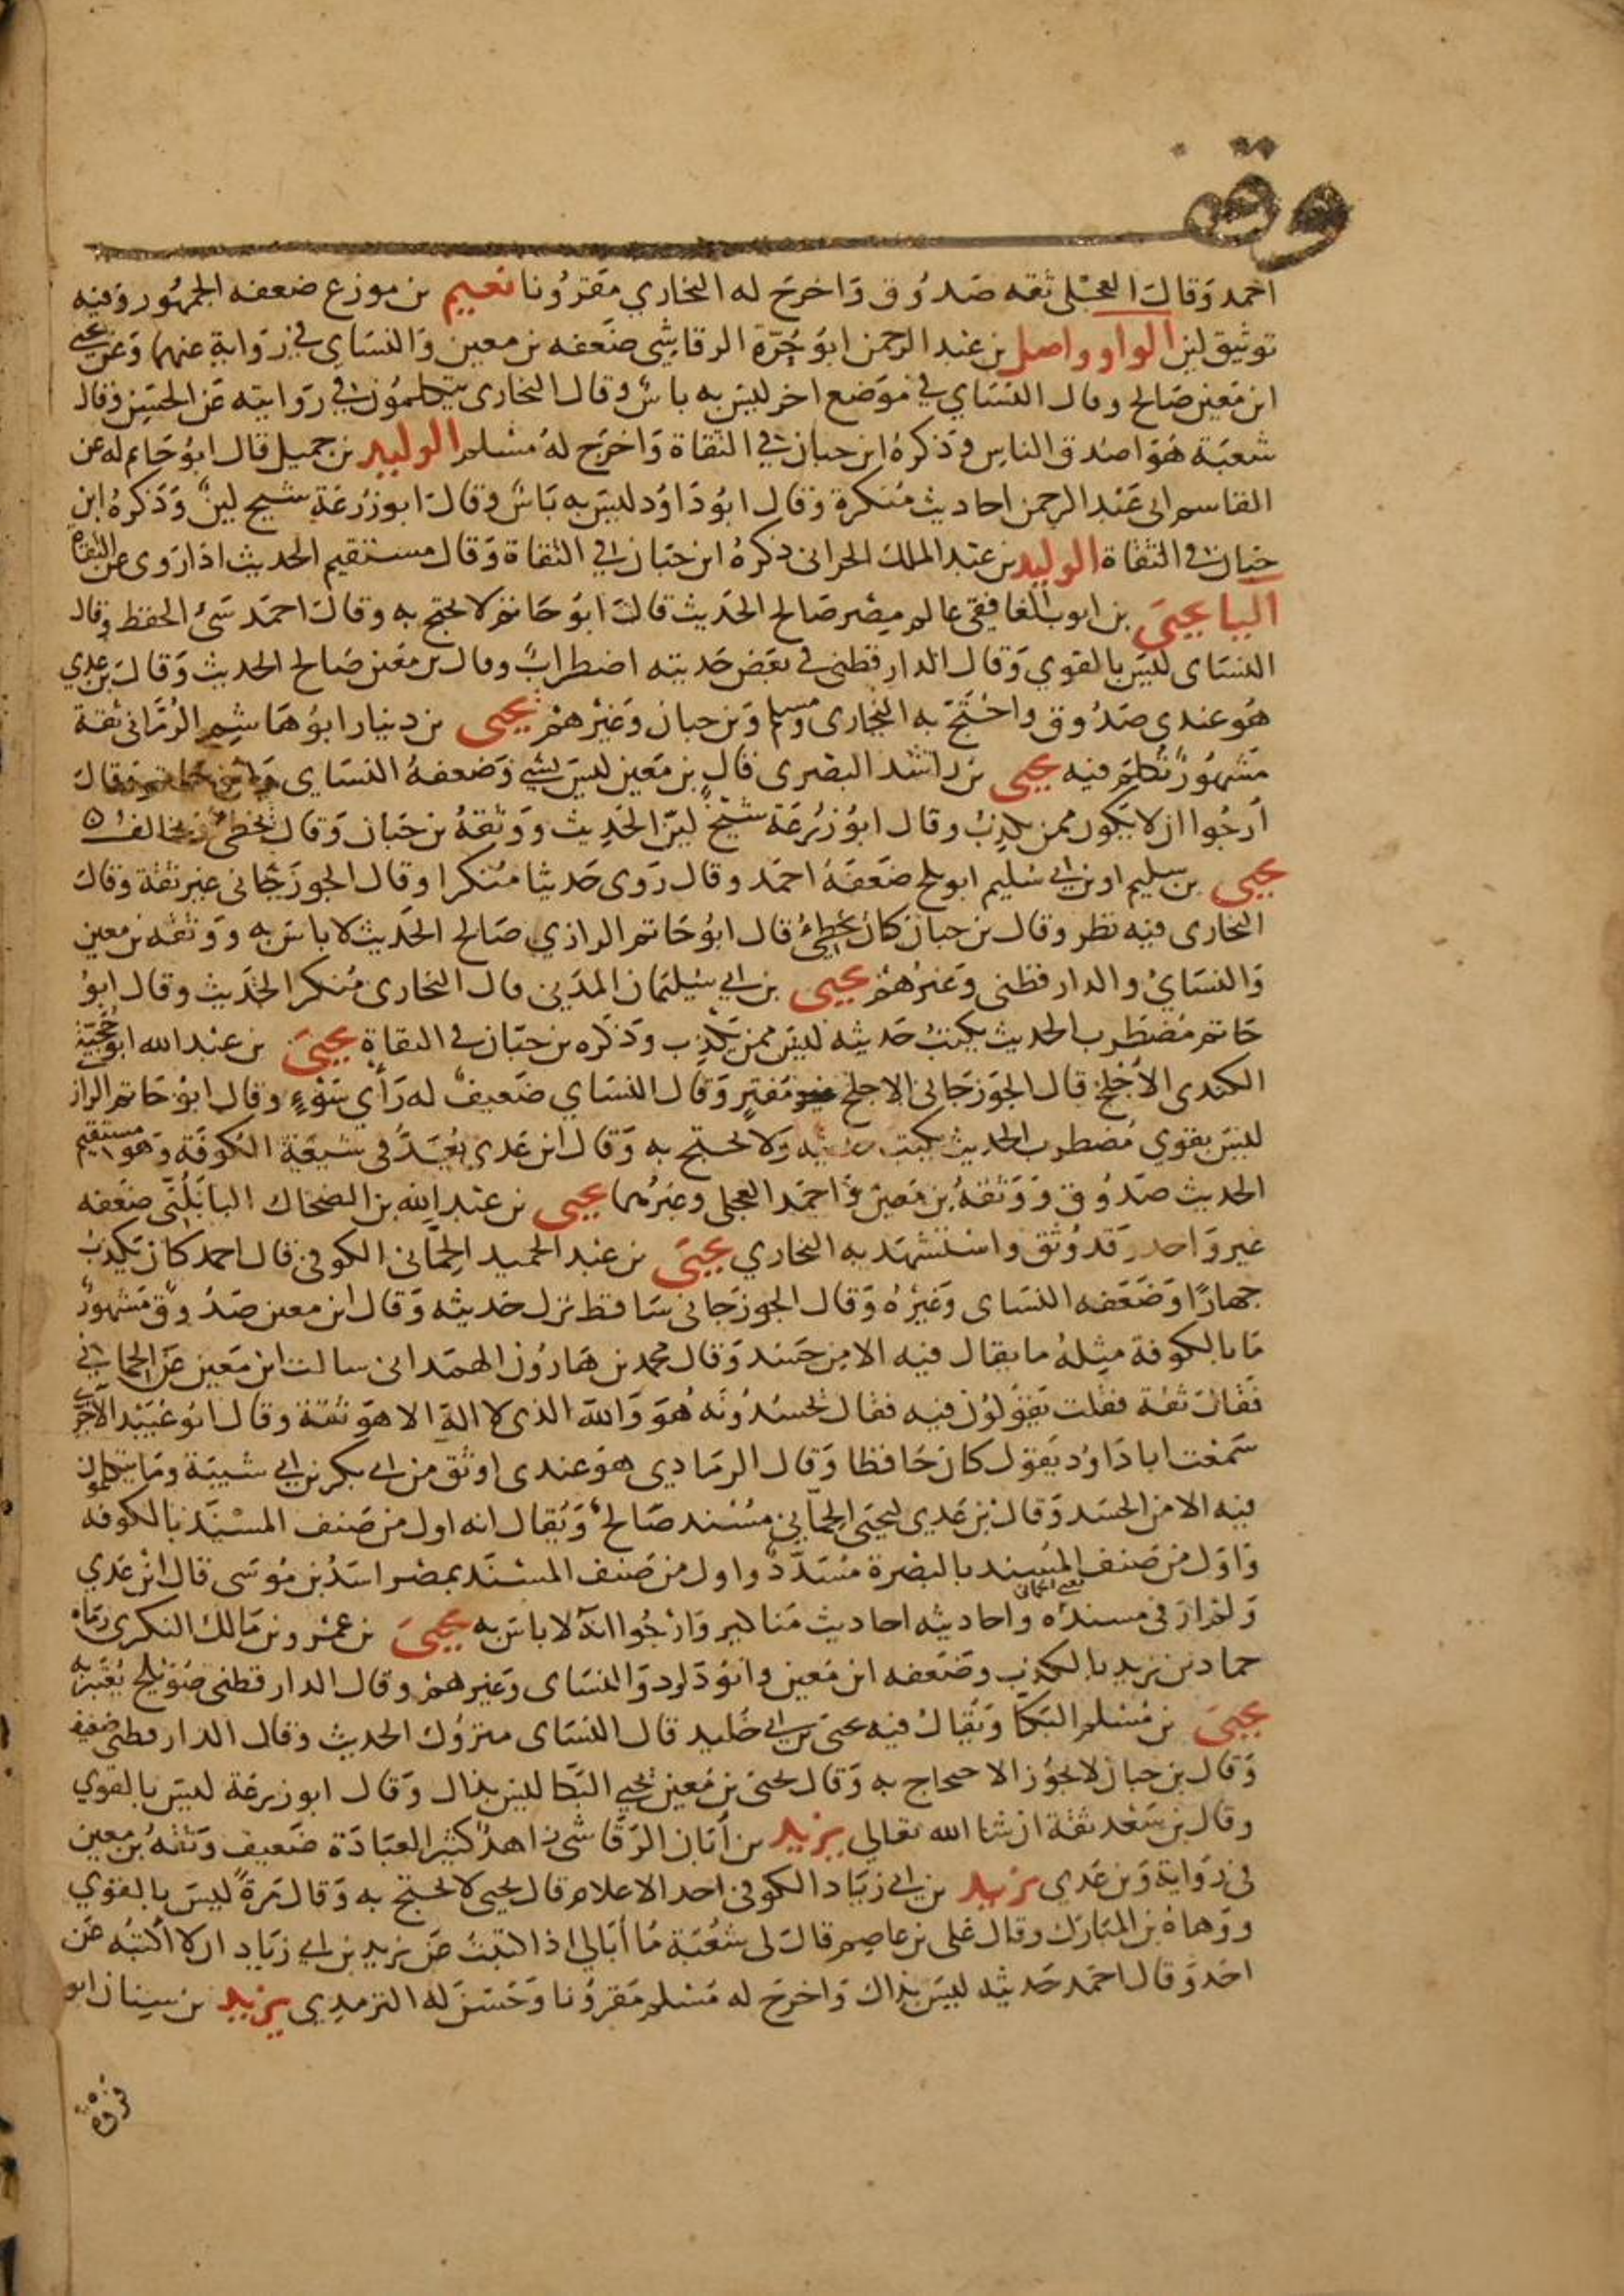 وقف
احمد وقال العجلى ثقه صدوق واخرج له البخاري مقرونا نعيم بن مورع ضعفه الجمهور وفيه
توثيق لين الواو واصل بن عبد الرحمن ابو حرة الرقاشي ضعفه بن معين والنساي في رواية عنهما وعن يحيى
ابن معين صالح وقال النساي في موضع اخر ليس به باس وقال البخارى يتكلمون في روايته عن الحسن وقال
شعبة هو اصدق الناس وذكره ابن حبان في الثقاة واخرج له مسلم الوليد بن جميل قال ابو حاتم له عن
القاسم ابى عبد الرحمن احاديث منكرة وقال ابو داود ليس به باس وقال ابو زرعة شيخ لين وذكره ابن
حبان في الثقاة الوليد بن عبد الملك الحرانى ذكره ابن حبان في الثقاة وقال مستقيم الحديث اذا روى عن الثقاة
اليا يحيى بن ايوب الغافقى عالم مصر صالح الحديث قال ابو حاتم لا يحتج به وقال احمد سئ الحفظ وقال
النساى ليس بالقوي وقال الدارقطنى في بعض حديثه اضطراب وقال بن معين صالح الحديث وقال بن عدي
هو عندى صدوق واحتج به البخارى ومسلم وبن حبان وغيرهم يحيى بن دينار ابو هاشم الرمانى ثقة
مشهور تكلم فيه يحيى بن راشد البصرى قال بن معين ليس بشي وضعفه النساي وقال
أرجوا ان لا يكون ممن يكذب وقال ابو زرعة شيخ لين الحديث ووثقه بن حبان وقال يخطى ويخالف ٥
يحيى بن سليم او بن ابي سليم ابو بلج ضعفه احمد وقال روى حديثا منكرا وقال الجوزجانى غير ثقة وقال
البخارى فيه نظر وقال بن حبان كان يخطئ قال ابو حاتم الرازي صالح الحديث لا باس به ووثقه بن معين
والنسائ والدارقطنى وغيرهم يحيى بن ابي سليمان المدني قال البخارى منكر الحديث وقال ابو
حاتم مضطرب الحديث يكتب حديثه ليس ممن يكذب وذكره بن حبان في الثقاة يحيى بن عبد الله ابو حجية
الكندى الأجلح قال الجوزجانى الاجلح مفتر وقال النساي ضعيف له رأي سوء وقال ابو حاتم الراز
ليس بقوي مضطرب الحديث يكتب حديثه ولا يحتج به وقال ابن عدي يعد في شيعة الكوفة وهو مستقيم
الحديث صدوق ووثقه بن معين واحمد العجلى وغيرهما يحيى بن عبد الله بن الضحاك البابلتى ضعفه
غير واحد وقد وثق واستشهد به البخاري يحيى بن عبد الحميد الحمانى الكوفى قال احمد كان يكذب
جهارا وضعفه النساى وغيره وقال الجوزجانى ساقط ترك حديثه وقال ابن معين صدوق مشهور
ما بالكوفة مثله ما يقال فيه الا من حسد وقال محمد بن هارون الهمدانى سالت ابن معين عن الحمانى
فقال ثقة فقلت يقولون فيه فقال يحسدونه هو والله الذى لا اله الا هو ثقة وقال ابو عبيد الآجرى
سمعت ابا داود يقول كان حافظا وقال الرمادي هو عندى اوثق من ابى بكر بن ابي شيبة وما يتكلمون
فيه الا من الحسد وقال بن عدى ليحيى الحماني مسند صالح ويقال انه اول من صنف المسند بالكوفه
واول من صنف المسند بالبصرة مسدد واول من صنف المسند بمصر اسد بن موسى قال ابن عدي
ولم ار في مسنده واحاديثه احاديث مناكير وارجوا انه لا باس به يحيى بن عمرو بن مالك النكرى رماه
حماد بن زيد بالكذب وضعفه ابن معين وابو داود والنساى وغيرهم وقال الدارقطنى صويلح يعتبر به
يحيى بن مسلم البكا ويقال فيه يحيى بن ابي خليد قال النساى متروك الحديث وقال الدارقطنى ضعيف
وقال بن حبان لا يجوز الاحتجاج به وقال يحيى بن معين يحيى البكا ليس بذاك وقال ابو زرعة ليس بالقوي
وقال بن سعد ثقة ان شا الله تعالى يزيد بن أبان الرقاشى زاهد كثير العبادة ضعيف وثقه بن معين
فى رواية وبن عدى يزيد بن ابي زياد الكوفى احد الاعلام قال يحيى لا يحتج به وقال مرة ليس بالقوي
ووهاه بن المبارك وقال على بن عاصم قال لى شعبة ما أبالى اذا كتبت عن يزيد بن ابي زياد ان لا اكتبه عن
احد وقال احمد حديثه ليس بذاك واخرج له مسلم مقرونا وحسن له الترمذي يزيد بن سنان ابو